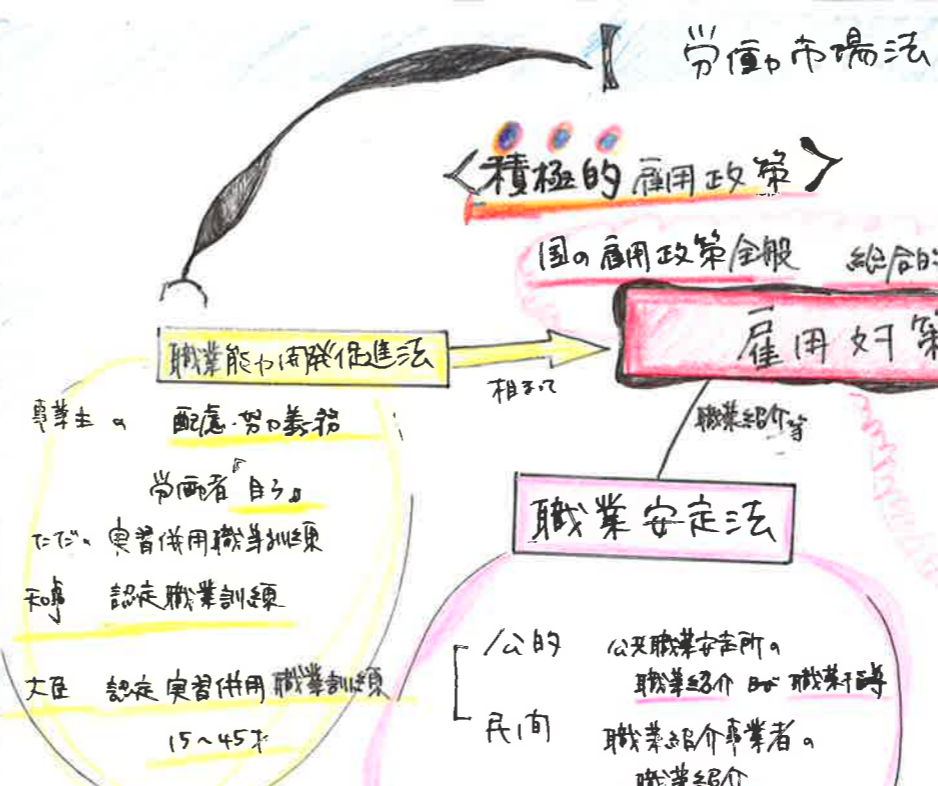 労働市場法
<積極的雇用政策>
国の雇用政策全般 総合的
雇用対策
職業能力開発促進法
相まって
職業紹介等
事業主の 配慮・努力義務
労働者『自ら』
ただの 実習併用職業訓練
知事 認定職業訓練
大臣 認定実習併用職業訓練
15～45才
職業安定法
公的 公共職業安定所の
職業紹介 及び 職業指導
民間 職業紹介事業者の
職業紹介